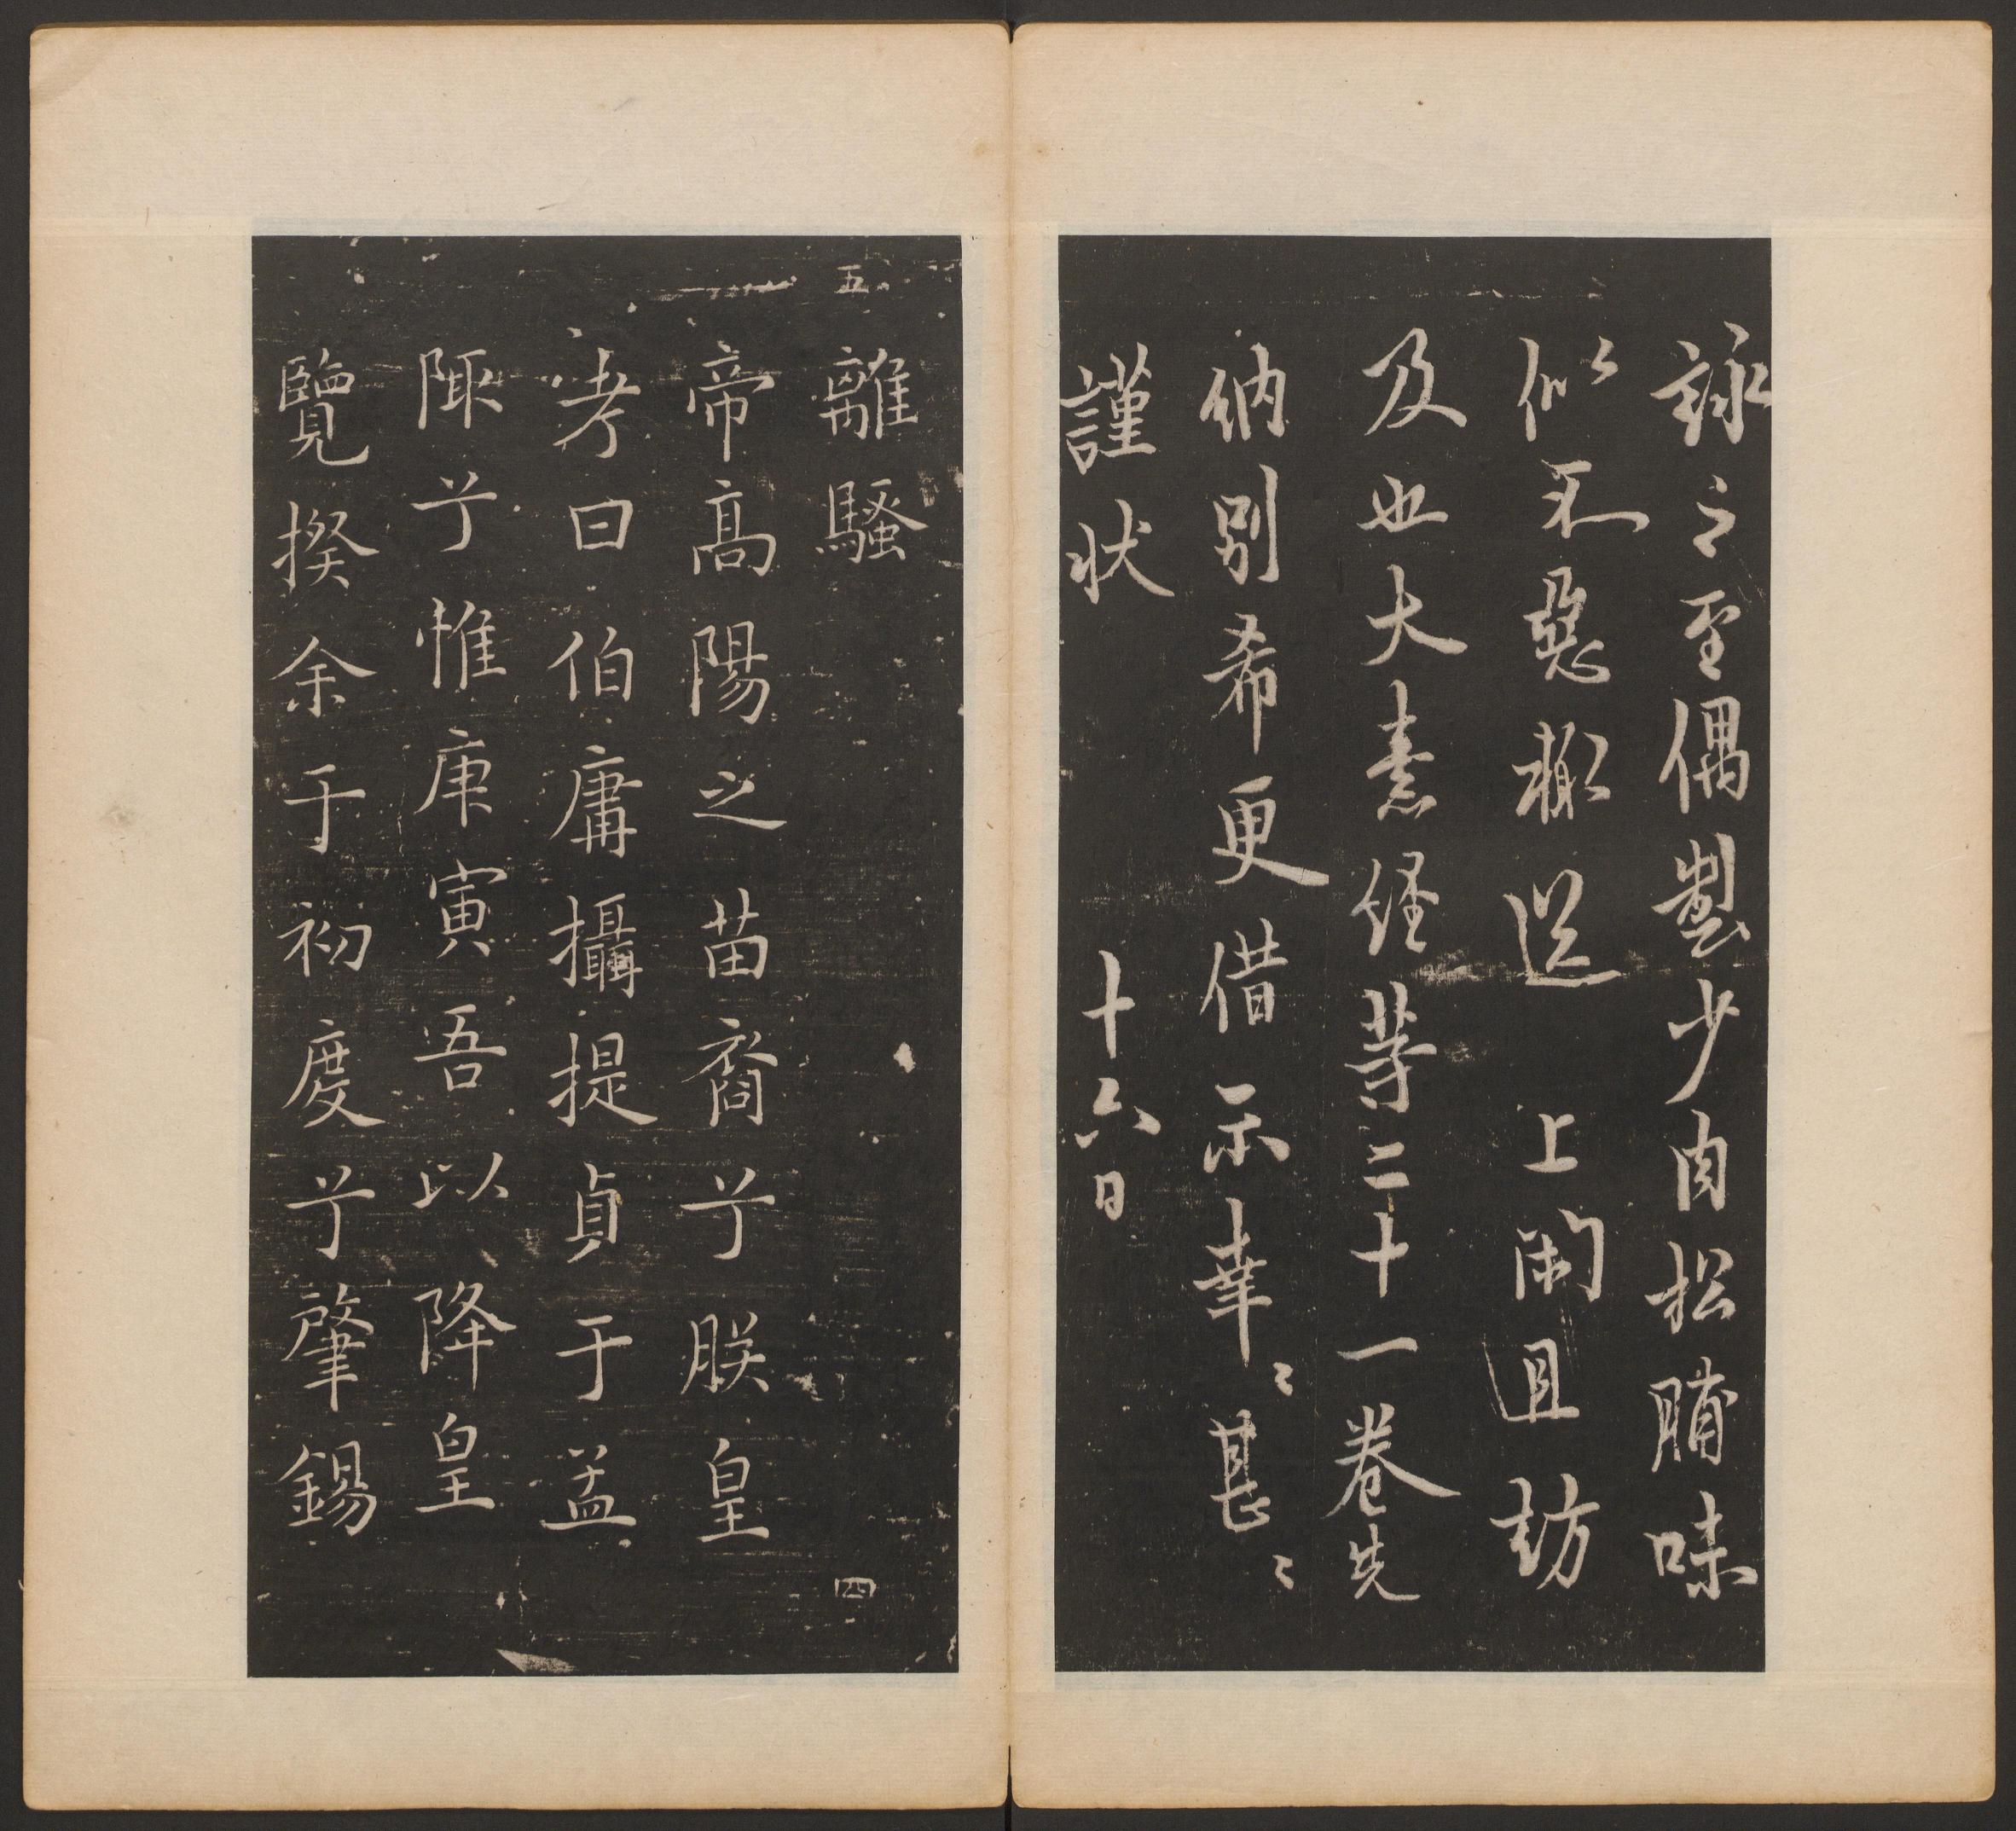 詠之至偶製少肉松脯味
似不惡輒送上閑且訪
及也大素經等二十一卷先
納別希更借示幸〻甚〻
謹狀 十六日
五
離騷
四
帝高陽之苗裔兮朕皇
考曰伯庸攝提貞于孟
陬兮惟庚寅吾以降皇
覽揆余于初度兮肇錫